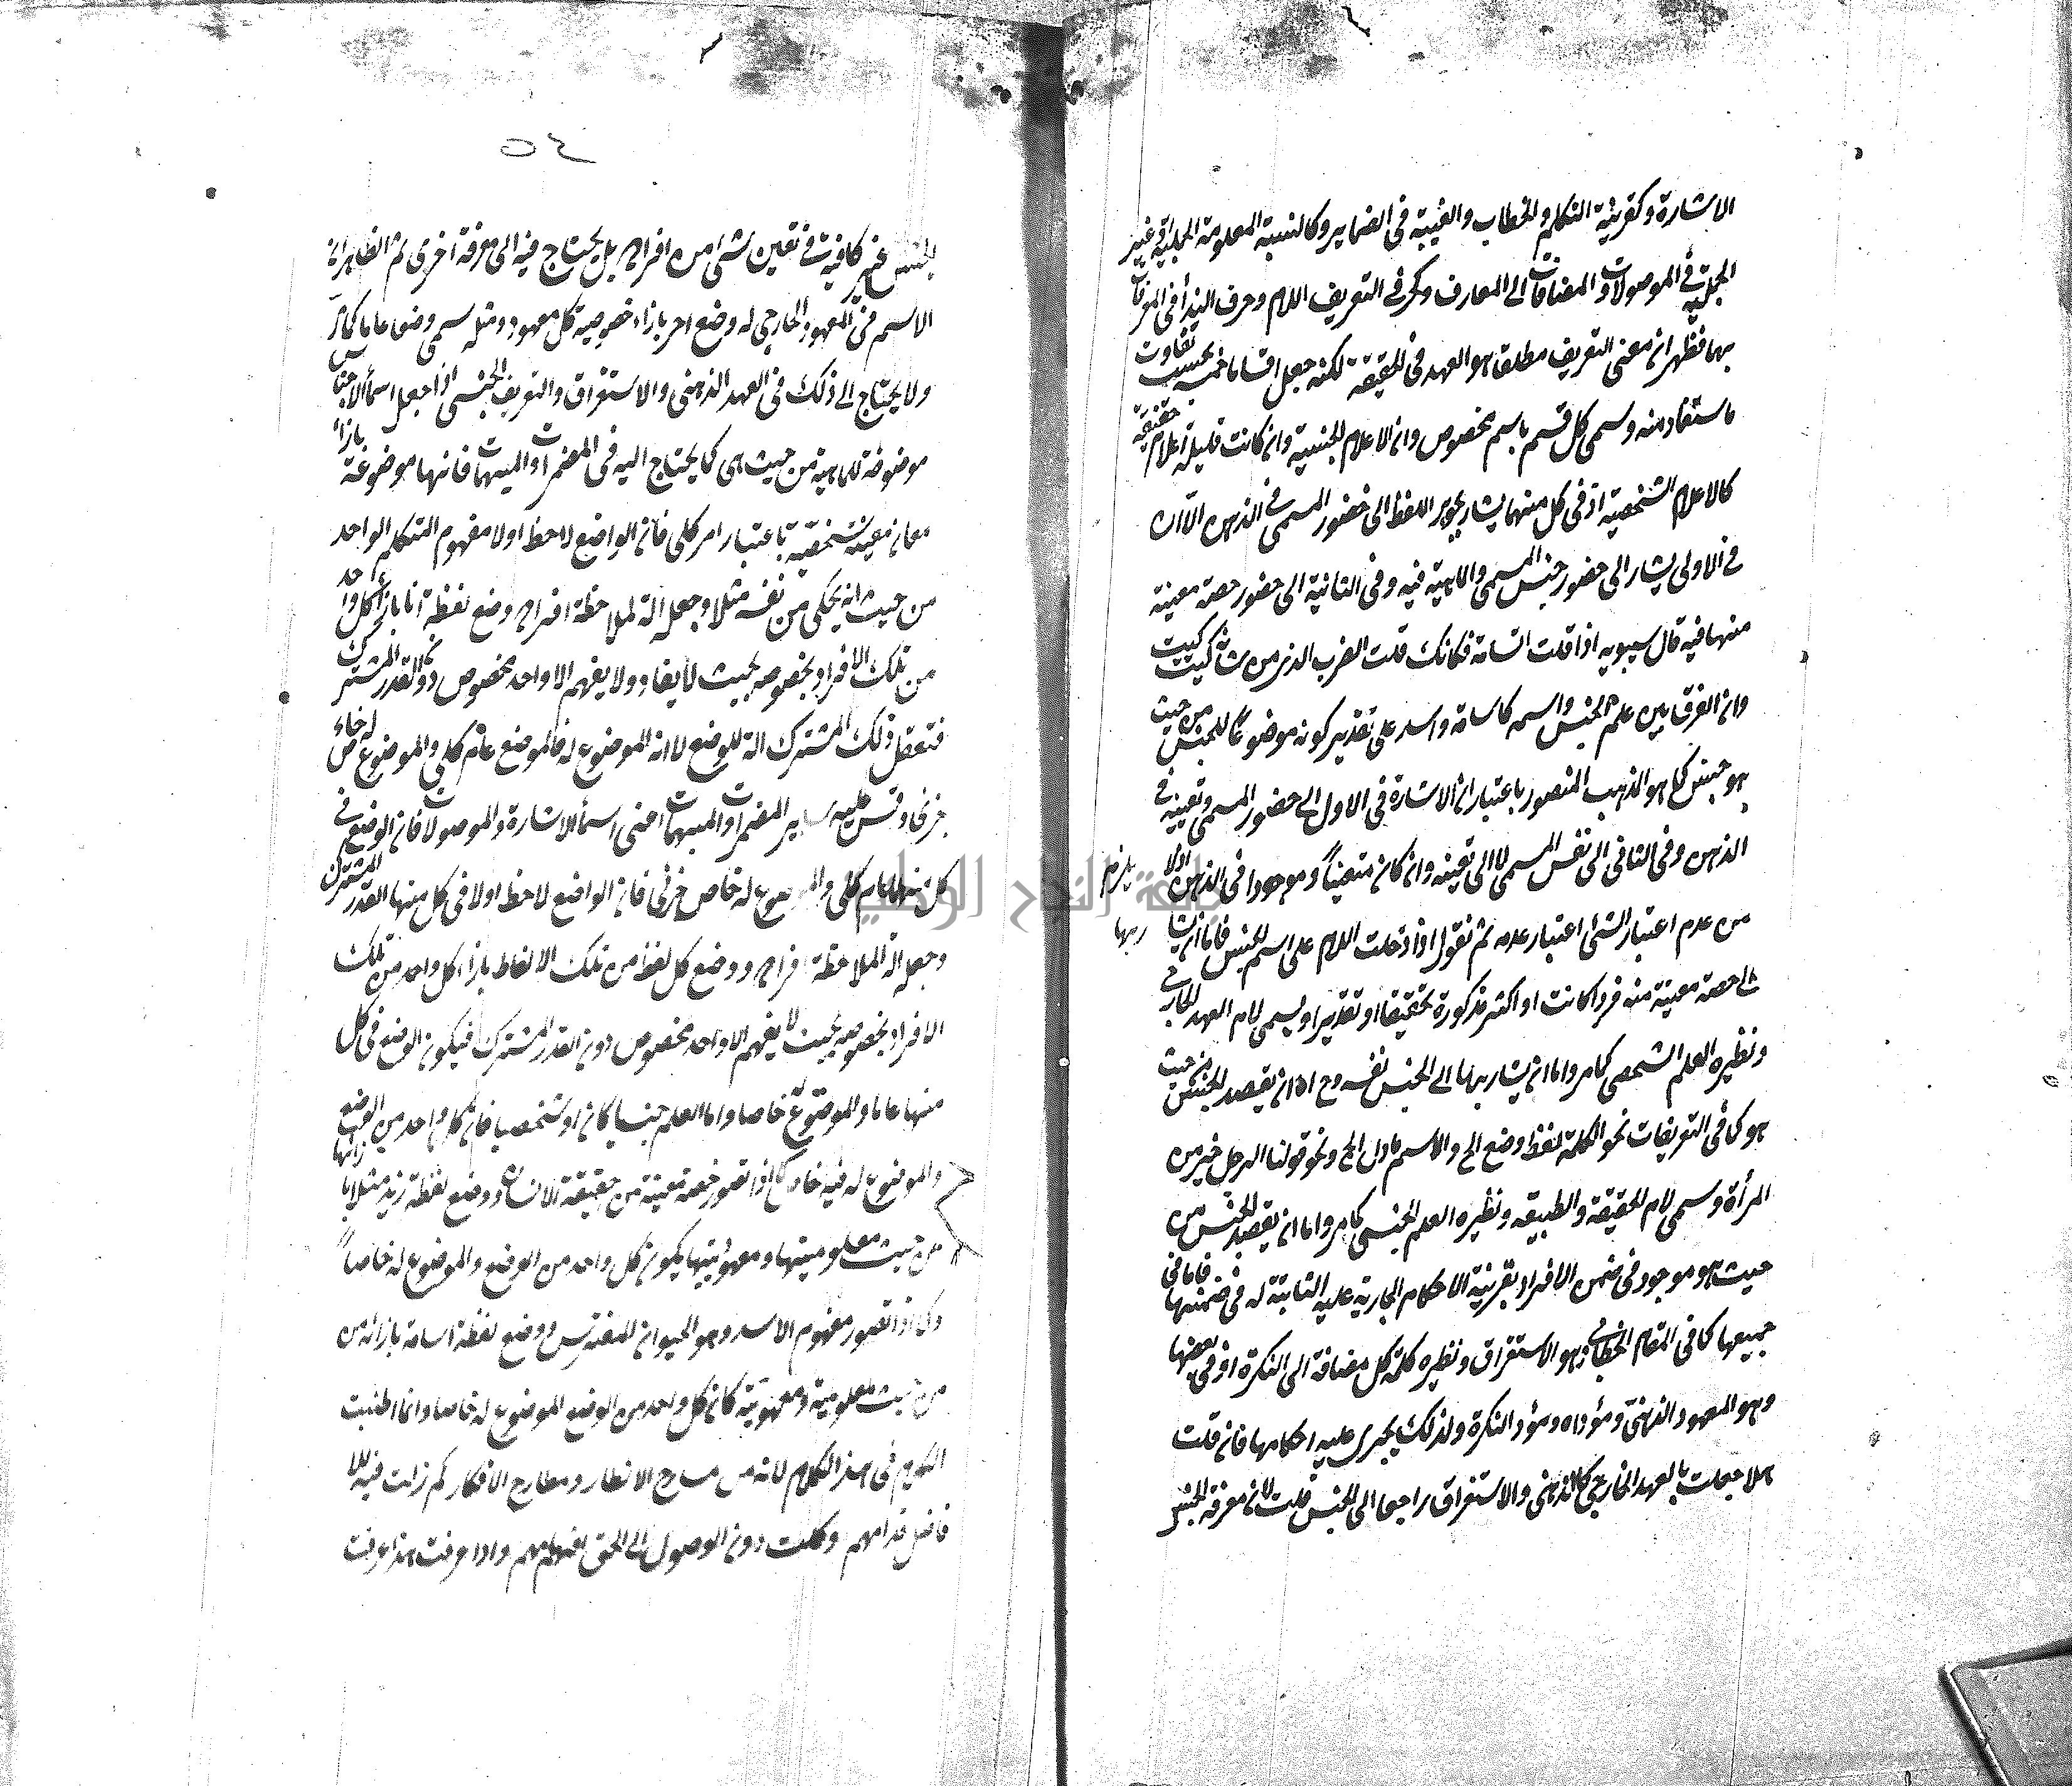 الاشارة وكقرينة التكلم والخطاب والغيبة في الضماير وكالنسبة المعلومة الجملية او غير
الجملية في الموصولات والمضافات الى المعارف وكحرفي التعريف اللام وحرف النداء في المعرفات
بهما فظهر ان معنى التعريف مطلقا هو العهد في الحقيقة لكنه جعل اقساما خمسة بحسب تفاوت
ما يستفاد منه وسمي كل قسم باسم مخصوص وان الاعلام الجنسية وان كانت قليلة اعلام حقيقية
كالاعلام الشخصية اذ في كل منهما يشار بجوهر اللفظ الى حضور المسمى في الذهن الا ان
في الاولى يشار الى حضور جنس المسمى والماهية فيه وفي الثانية الى حضور حصة معينة
منها فيه قال سيبويه اذا قلت اسامة فكانك قلت الضرب الذي من شانه كيت كيت
وان الفرق بين علم الجنس واسمه كاسامة واسد على تقدير كونه موضوعا للجنس من حيث
هو جنس كما هو المذهب المنصور باعتبار ان الاشارة في الاول الى حضور المسمى وتعينه في
الذهن وفي الثاني الى نفس المسمى لا الى تعينه وان كان متعينا وموجودا في الذهن اذ لا يلزم
من عدم اعتبار الشئ اعتبار عدمه ثم نقول اذا دخلت اللام على اسم الجنس فاما ان يشار بها
الى حصة معينة منه فردا كانت او اكثر مذكورة تحقيقا او تقديرا ويسمى لام العهد الخارجي
ونظيره العلم الشخصي كما مر واما ان يشار بها الى الجنس نفسه وح اما ان يقصد الجنس من حيث
هو كما في التعريفات نحو الكلمة لفظ وضع الخ والاسم ما دل الخ ونحو قولنا الرجل خير من
المرأة وسمي لام الحقيقة والطبيعة ونظيره العلم الجنسي كما مر واما ان يقصد الجنس من
حيث هو موجود في ضمن الافراد بقرينة الاحكام الجارية عليه الثابتة له في ضمنها فاما في
جميعها كما في المقام الخطابي وهو الاستغراق ونظيره كلمة كل مضافة الى النكرة او في بعضها
وهو المعهود الذهني ومؤداه مؤدى النكرة ولذلك يجري عليه احكامها فان قلت
هلا جعلت العهد الخارجي كالذهني والاستغراق راجعا الى الجنس قلت لان معرفة الجنس
٥٤
الجنس غير كافية في تعين شئ من افراده بل يحتاج فيه الى معرفة اخرى ثم الظاهر ان
الاسم في المعهود الخارجي له وضع اخر بازاء خصوصية كل معهود ومثله سمي وضعا عاما كما مر
ولا يحتاج الى ذلك في العهد الذهني والاستغراق والتعريف الجنسي اذا جعل اسماء الاجناس
موضوعة للماهية من حيث هي كما يحتاج اليه في المضمرات والمبهمات فانها موضوعة بازاء
معان معينة شخصية باعتبار امر كلي فان الواضع لاحظ اولا مفهوم المتكلم الواحد
من حيث انه يحكي عن نفسه مثلا وجعله آلة لملاحظة افراده ووضع لفظة انا بازاء كل واحد
من تلك الافراد بخصوصه بحيث لا يفاد ولا يفهم الا واحد مخصوص دون القدر المشترك
فتعقل ذلك المشترك آلة للوضع لا انه الموضوع له فالوضع عام كلي والموضوع له خاص
جزئي وقس عليه ساير المضمرات والمبهمات اعني اسماء الاشارة والموصولات فان الوضع في
كل منها عام كلي والموضوع له خاص جزئي فان الواضع لاحظ اولا في كل منها القدر المشترك
وجعله آلة لملاحظة افراده ووضع كل لفظ من تلك الالفاظ بازاء كل واحد من تلك
الافراد بخصوصه بحيث لا يفهم الا واحد مخصوص دون القدر المشترك فيكون الوضع في كل
منها عاما والموضوع له خاصا واما العلم جنسيا كان او شخصيا فان كل واحد من الوضع
والموضوع له فيه خاص كما اذا تصور حصة معينة من حقيقة الانسان ووضع لفظة زيد مثلا بازائها
من حيث معلوميتها ومعهوديتها يكون كل واحد من الوضع والموضوع له خاصا
وكما اذا تصور مفهوم الاسد وهو الحيوان المفترس ووضع لفظة اسامة بازائه من
من حيث معلوميته ومعهوديته كان كل واحد من الوضع الموضوع له خاصا وانما اطنبت
الكلام في هذا الكلام لانه من مسارح الانظار ومطارح الافكار كم زلت فيه للا
فاضل اقدامهم وكلت دون الوصول الى الحق افهامهم واذا عرفت هذا عرفت
جامعة النجاح الوطنية